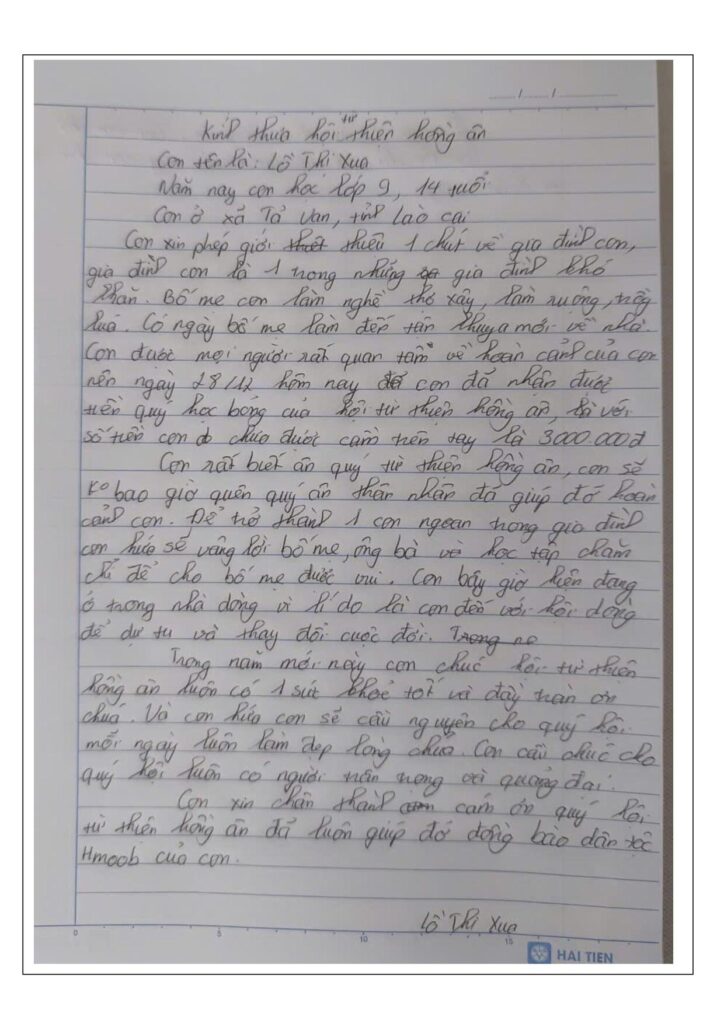 Kính thưa hội từ thiện hồng ân
Con tên là: Lồ Thị Xua
Năm nay con học lớp 9, 14 tuổi
Con ở xã Tả Van, tỉnh lào cai
Con xin phép giới thiêu 1 chút về gia đình con,
gia đình con là 1 trong những gia đình khó
khăn. Bố mẹ con làm nghề thợ xây, làm ruộng, trồng
luá. Có ngày bố mẹ làm đến tận khuya mới về nhà.
Con được mọi người rất quan tâm về hoàn cảnh của con
nên ngày 28/12 hôm nay con đã nhận được
tiền quỹ học bổng của hội từ thiện hồng ân, với
số tiền con chưa được cầm trên tay là 3.000.000đ
Con rất biết ân quý từ thiện hồng ân, con sẽ
ko bao giờ quên quý ân thân nhân đã giúp đỡ hoàn
cảnh con. Để trở thành 1 con ngoan trong gia đình
con hứa sẽ vâng lời bố mẹ, ông bà và học tập chăm
chỉ để cho bố mẹ được vui. Con bây giờ hiện đang
ở trong nhà dòng vì lí do là con đến với hội dòng
để dự tu và thay đổi cuộc đời.
Trong năm mới này con chúc hội từ thiện
hồng ân luôn có 1 sức khoẻ tốt và đầy tràn ơn
chuá. Và con hứa con sẽ cầu nguyện cho quý hội
mỗi ngày luôn làm đẹp lòng chúa. Con cầu chúc cho
quý hội luôn có người trân trọng và quảng đại.
Con xin chân thành cảm ơn quý hội
từ thiện hồng ân đã luôn giúp đỡ đồng bào dân tộc
Hmoob của con.
Lồ Thị Xua
0 5 10 15
HAI TIEN